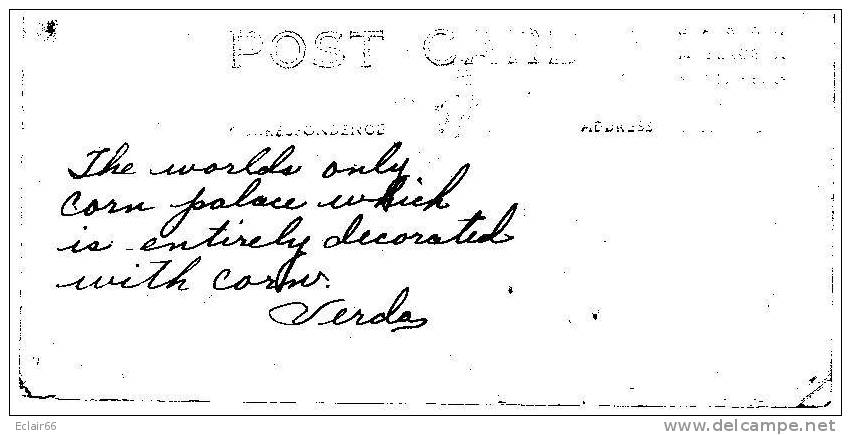 POST CARD
CORRESPONDENCE ADDRESS
The worlds only
corn palace which
is entirely decorated
with corn.
Verda
Eclair66
www.delcampe.net